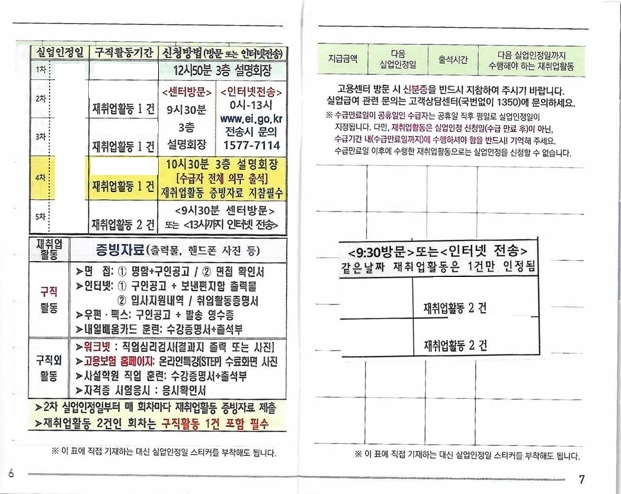 실업인정일 구직활동기간 신청방법(방문 또는 인터넷전송)
1차 12시50분 3층 설명회장
2차 재취업활동 1 건
3차 재취업활동 1 건
<센터방문>
9시30분
3층
설명회장
<인터넷전송>
0시-13시
www.ei.go.kr
전송시 문의
1577-7114
4차 재취업활동 1 건
10시30분 3층 설명회장
[수급자 전체 의무 출석]
재취업활동 증빙자료 지참필수
5차 재취업활동 2 건
<9시30분 센터방문>
또는 <13시까지 인터넷 전송>
재취업
활동
증빙자료(출력물, 핸드폰 사진 등)
구직
활동
➤면 접: ① 명함+구인공고 / ② 면접 확인서
➤인터넷: ① 구인공고 + 보낸편지함 출력물
② 입사지원내역 / 취업활동증명서
➤우편·팩스: 구인공고 + 발송 영수증
➤내일배움카드 훈련: 수강증명서+출석부
구직외
활동
➤워크넷 : 직업심리검사(결과지 출력 또는 사진)
➤고용보험 홈페이지: 온라인특강(STEP) 수료화면 사진
➤사설학원 직업 훈련: 수강증명서+출석부
➤자격증 시험응시 : 응시확인서
➤2차 실업인정일부터 매 회차마다 재취업활동 증빙자료 제출
➤재취업활동 2건인 회차는 구직활동 1건 포함 필수
※ 이 표에 직접 기재하는 대신 실업인정일 스티커를 부착해도 됩니다.
6
지급금액
다음
실업인정일
출석시간
다음 실업인정일까지
수행해야 하는 재취업활동
고용센터 방문 시 신분증을 반드시 지참하여 주시기 바랍니다.
실업급여 관련 문의는 고객상담센터(국번없이 1350)에 문의하세요.
※ 수급만료일이 공휴일인 수급자는 공휴일 직후 평일로 실업인정일이
지정됩니다. 다만, 재취업활동은 실업인정 신청일(수급 만료 후)이 아닌,
수급기간 내(수급만료일까지)에 수행하셔야 함을 반드시! 기억해 주세요.
수급만료일 이후에 수행한 재취업활동으로는 실업인정을 신청할 수 없습니다.
<9:30방문>또는<인터넷 전송>
같은날짜 재취업활동은 1건만 인정됨
재취업활동 2 건
재취업활동 2 건
※ 이 표에 직접 기재하는 대신 실업인정일 스티커를 부착해도 됩니다.
7